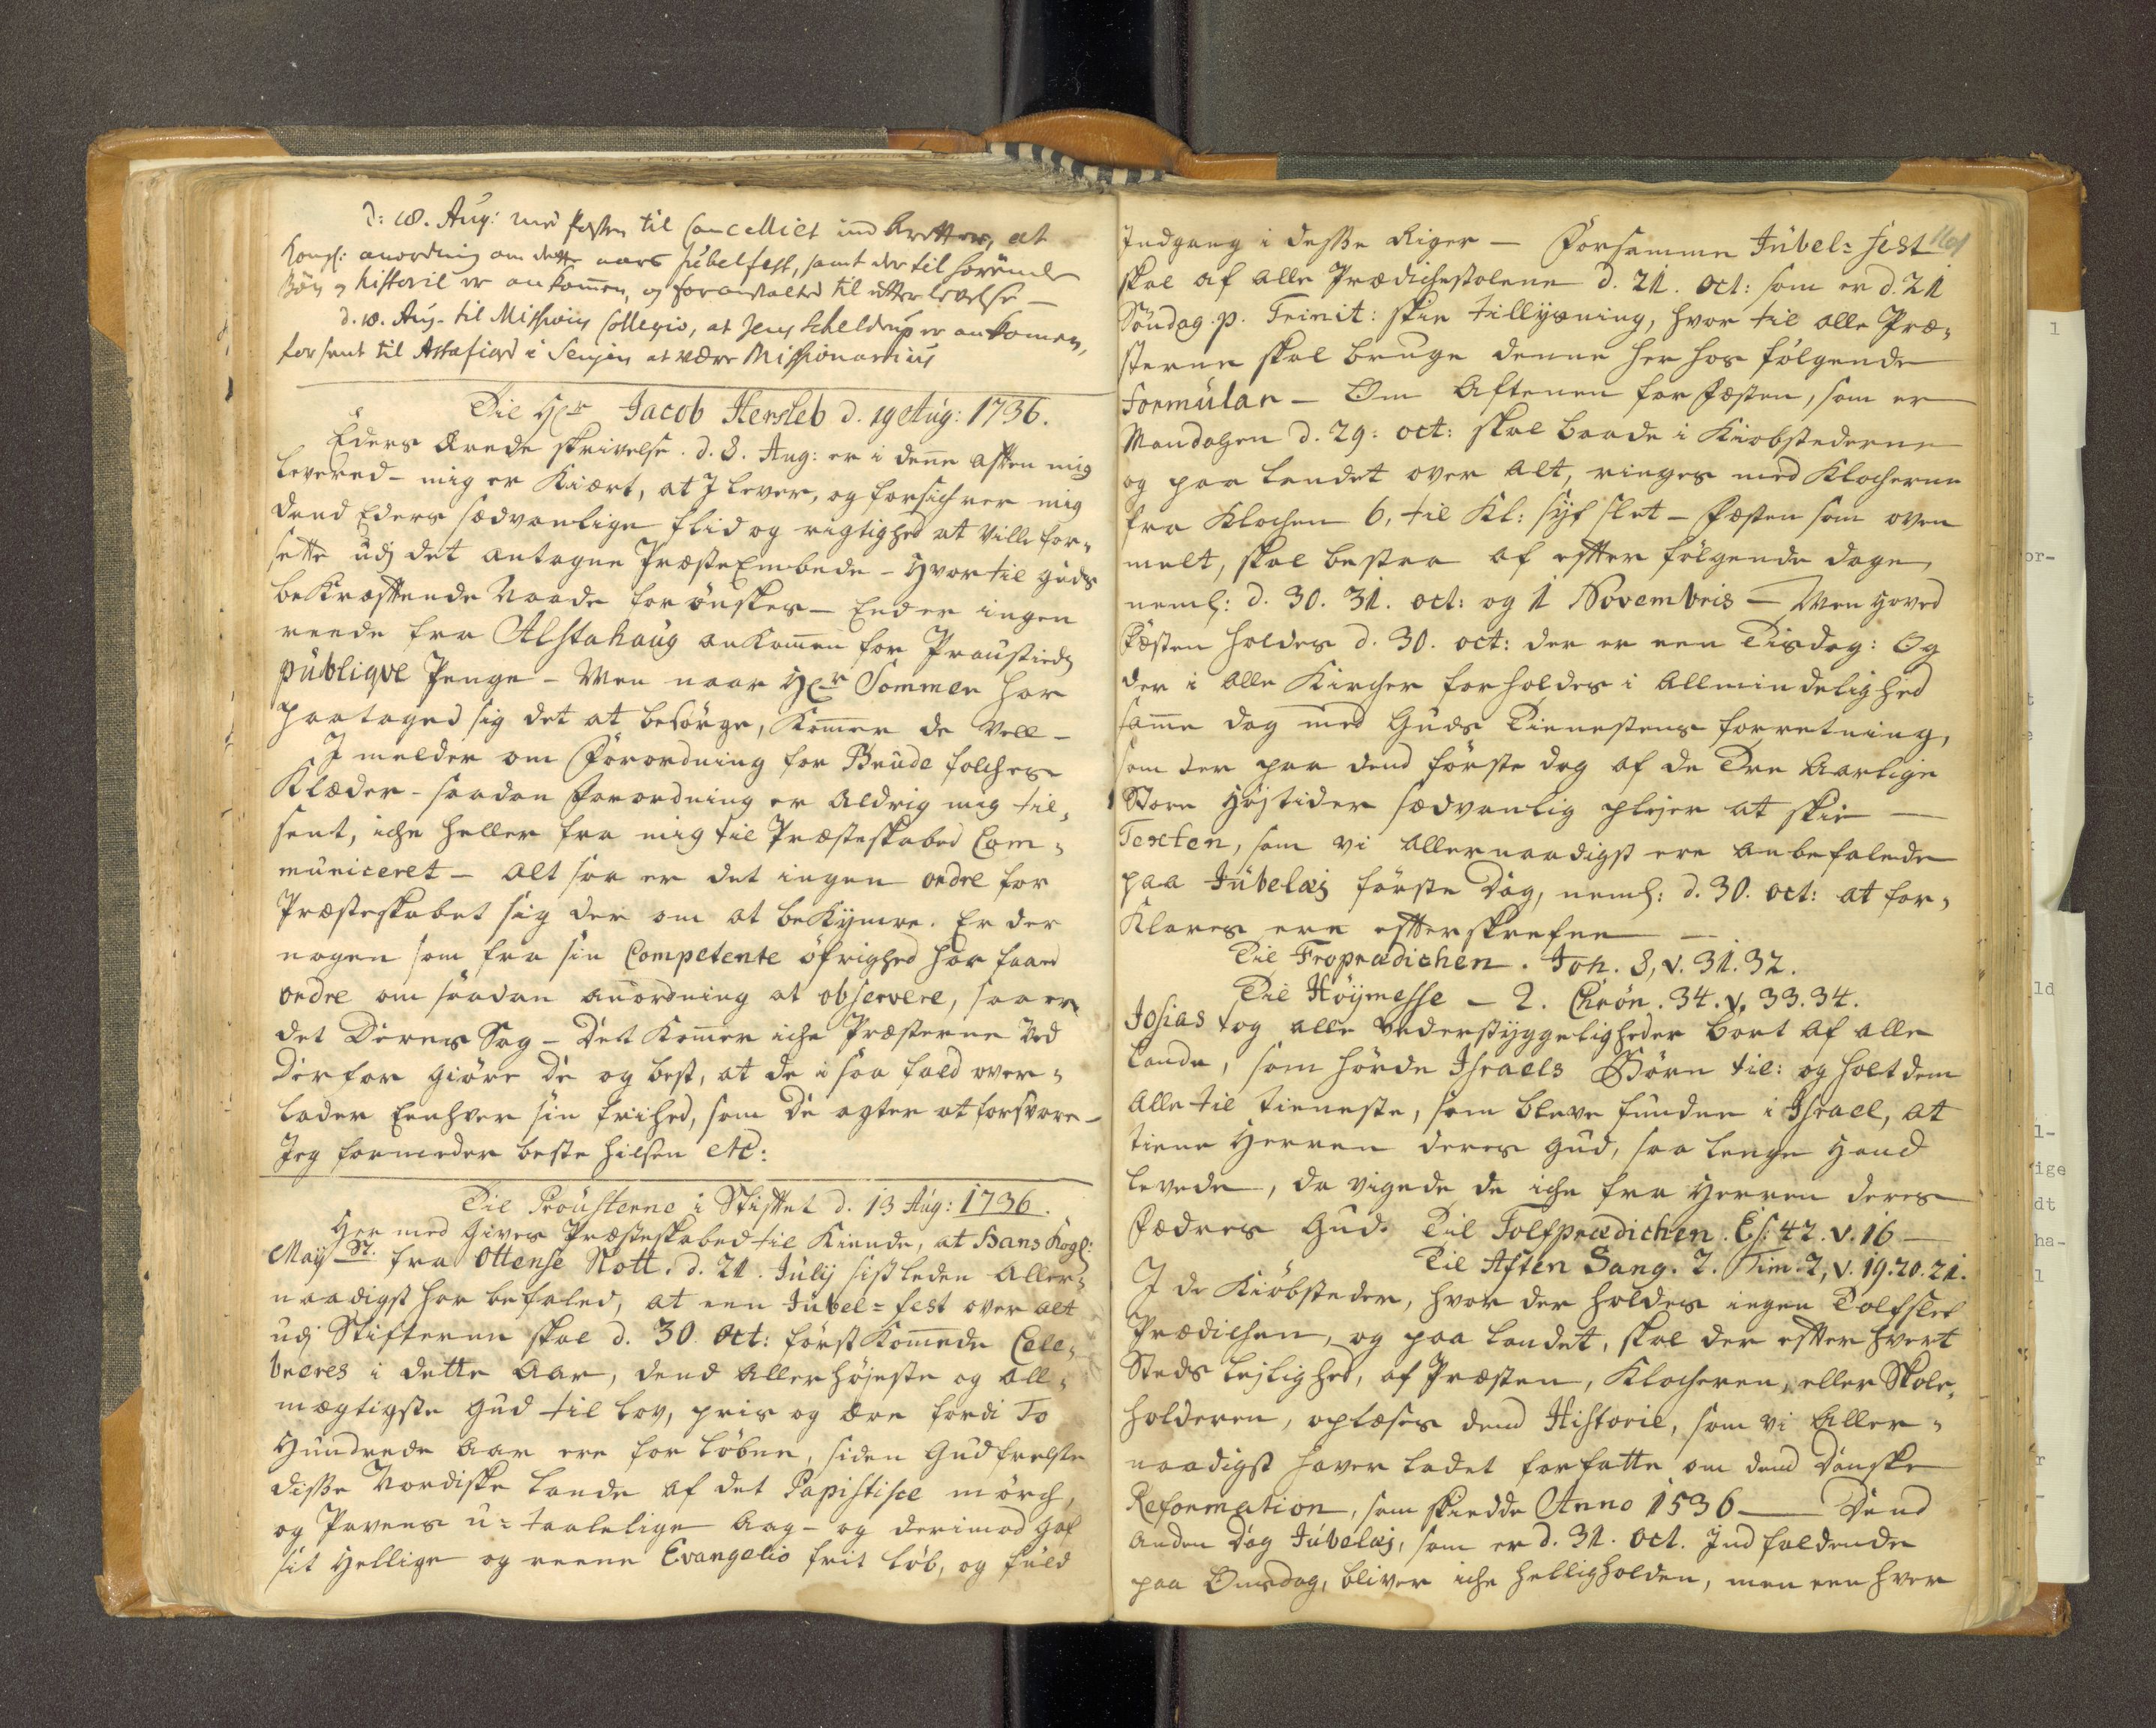 d: 18. Aug: med posten til Cancelliet indberettes, at
Kongl: anordning om dette aars Jubelfest, samt der til hörende
Bön og historie er ankomen, og foranstalted til efterlevelse —
d. 18. Aug. til Missions Collegio, at Jens Schelderup er ankomen,
forsent til Astafiord i Senjen at være Missionarius
Til Hr Jacob Hersleb d. 19 Aug: 1736.
Eders ærede skrivelse d. 8. Aug: er i denne aften mig
levered – mig er Kiært, at I lever, og forsichrer mig
dend Eders sædvanlige flid og rigtighed at ville for-
sette udj det antagne Præste Embede – Hvor til Guds
bekræftende Naade forönskes – End er ingen
reede fra Alstahaug ankommen for Proustiets
publiqve Penge – Men naar Hr Sommer har
paataged sig det at besörge, Kommer de vell –
I melder om Forordning for Brude folches
Klæder – saadan Forordning er aldrig mig til-
sent, iche heller fra mig til Præsteskabed Com-
municeret – alt saa er det ingen ordre for
Præsteskabet sig der om at bekymre. Er der
nogen som fra sin Competente öfrighed har faaed
ordre om saadan anordning at observere, saa er
det Deres Sag – Det Kommer iche Præsterne ved
Derfor giöre de og best, at de i saa fald over-
lader Eenhver sin frihed, som de agter at forsvare –
Jeg formelder beste hilsen etc:
Til Prousterne i Stiftet d. 13 Aug: 1736.
Her med Gives Præsteskabed til Kiende, at Hans Kogl:
May St. fra Ottense Slott. d. 21. July sistleden aller-
naadigst har befaled, at een Jubel-fest over alt
udj Stifterne skal d. 30. Oct: först Kommende Cele-
breres i dette Aar, dend aller höjeste og all-
mægtigste Gud til lov, pris og ære fordi To
Hundrede Aar ere forlöbne, siden Gud frelste
disse Nordiske lande af det Papistische mörch,
og Pavens u-taalelige Aag – og derimod gaf
sit Hellige og reene Evangelio frit löb, og fuld
Indgang i desse Riger — Forsamme Jubel-fest
skal af alle Prædichestolene d. 21. Oct: som er d. 21
Söndag p. Trinit: skie tillysning, hvor til alle Præ-
sterne skal bruge denne her hos fölgende
Formular – Om Aftenen for Festen, som er
Mandagen d. 29: oct: skal baade i Kiöbstederne
og paa landet over alt, ringes med Klocherne
fra Klochen 6, til Kl: syf slet – Festen som oven
melt, skal bestaa af efter fölgende dage,
neml: d. 30. 31. oct: og 1 Novembris — Men Hoved
Festen holdes d. 30. oct: der er een Tisdag: Og
der i alle Kircher forholdes i Allmindelighed
samme dag med Guds Tienestens forretning,
som der paa dend förste dag af de Tre Aarlige
Store Höjtider sædvanlig plejer at skie —
Texten, som vi allernaadigst ere anbefalede
paa Jubelæi förste Dag, neml: d. 30. oct: at for-
Klares ere efterskrefne —
Til Froprædichen. Joh. 8, v. 31. 32.
Til Höymesse – 2. Chrön. 34. v. 33. 34.
Josias tog alle vederstyggeligheder bort af alle
lande, som hörde Israels Börn til: og holt dem
alle til tieneste, som bleve funden i Israel, at
tiene Herren deres Gud, saa lenge Hand
levede, da vigede de iche fra Herren deres
Fædres Gud. Til Tolfprædichen. Es: 42. v. 16 —
Til Aften Sang. 2. Tim: 2, v. 19. 20. 21.
I de Kiöbsteder, hvor der holdes ingen Tolfslet
Prædichen, og paa landet, skal der efter hvert
Steds lejlighed, af Præsten, Klocheren, eller Skole-
holderen, oplæses dend Historie, som vi Aller-
naadigst haver ladet forfatte om dend Danske
Reformation, som skiedde Anno 1536 — Dend
anden Dag Jubelæi, som er d. 31. Oct. Ind faldende
paa Onsdag, bliver iche helligholden, men een hver